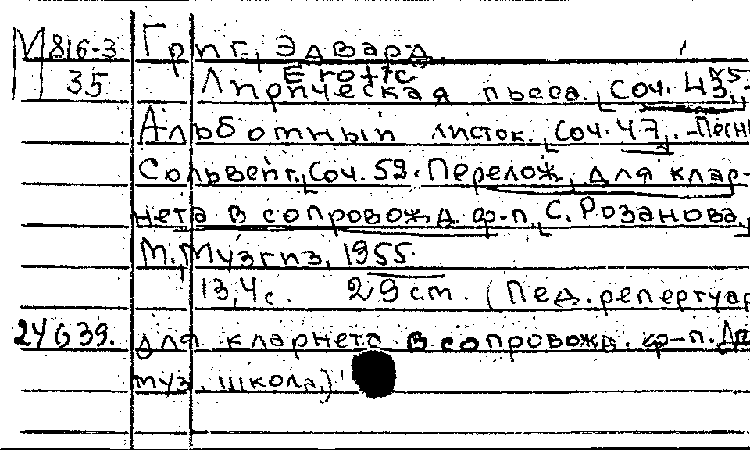 М816-3 Григ, Эдвард.
Erotic
35 Лирическая пьеса. Соч. 43,
Альбомный листок. Соч. 47. Песнь
Сольвейг. Соч. 52. Перелож. для клар-
нета в сопровожд. ф-п. С. Розанова.
М., Музгиз, 1955.
13,4 с. 29 cm. (Пед. репертуар
24639. для кларнета в сопровожд. ф-п.
муз. школа.)